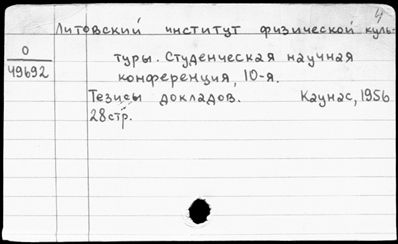 4
Литовский институт физической куль-
О
49692
туры. Студенческая научная
конференция, 10-я.
Тезисы докладов. Каунас, 1956
28стр.